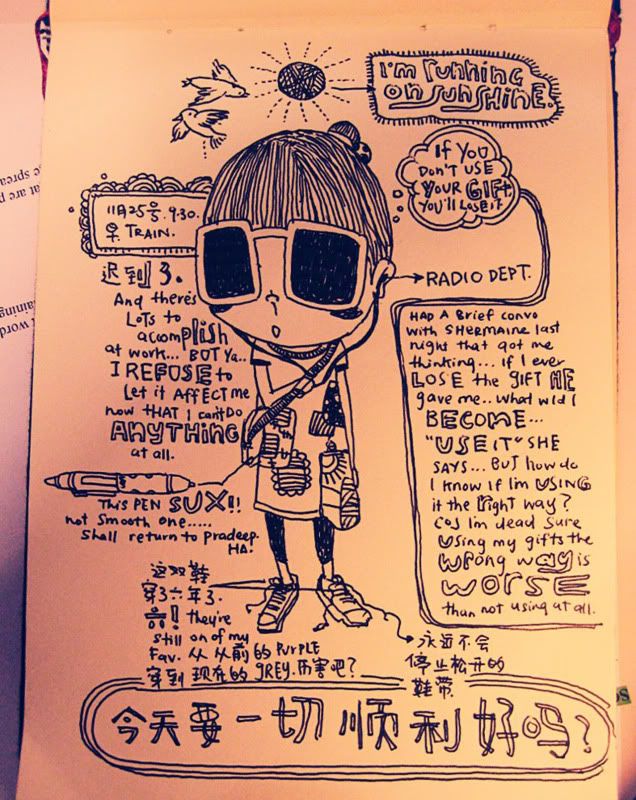 I'm running
on sunshine.
If you
don't use
your GIFt
you'll lose it
11月25号. 9.30.
早. TRAIN.
RADIO DEPT.
迟到了.
And there's
LOTS to
accomplish
at work... BUT Ya..
I REFUSE to
let it AFFECT me
now THAT I can't DO
ANYTHING
at all.
HAD A Brief convo
with SHERMAINE last
night that got me
thinking... If I ever
LOSE the GIFT HE
gave me.. what wld I
BECOME...
"USE IT" SHE
SAYS... BUT how do
I know if I'm USING
it the right way?
Cos I'm dead sure
using my gifts the
wrong way is
WORSE
than not using at all.
This PEN SUX!!
not smooth one.....
Shall return to pradeep.
HA!
这双鞋
穿了六年了.
六! they're
still on of my
Fav. 从从前的 PURPLE
穿到现在的 GREY. 厉害吧?
永远不会
停止松开的
鞋带
今天要一切顺利好吗?